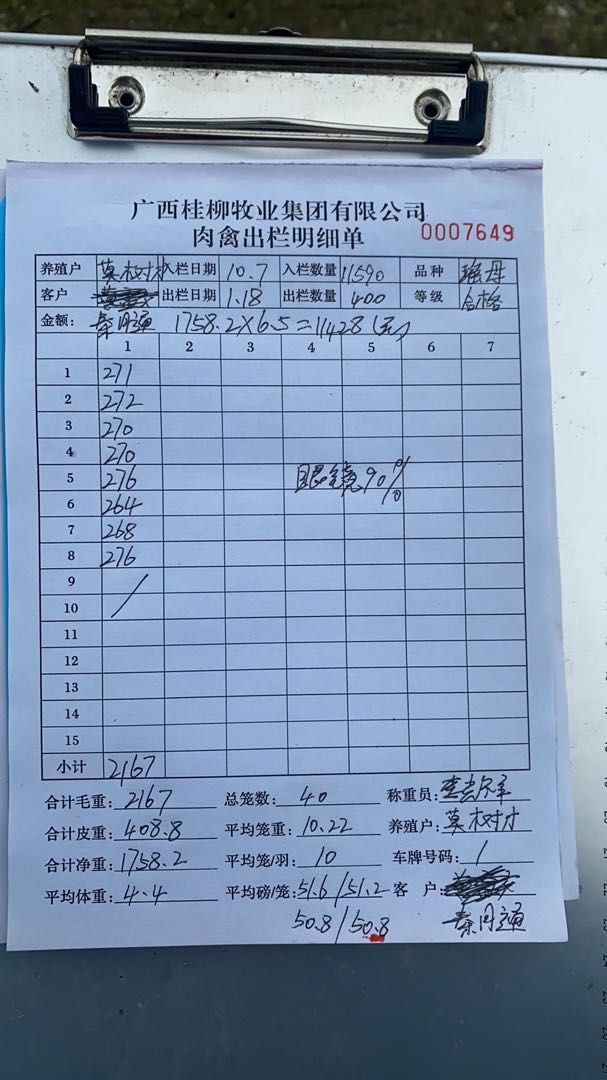 广西桂柳牧业集团有限公司
肉禽出栏明细单 0007649
养殖户 莫树才 入栏日期 10.7 入栏数量 11590 品种
客户 出栏日期 1.18 出栏数量 400 等级 合格
金额: 秦月 1758.2×6.5=11428(元)
1 2 3 4 5 6 7
1 271
2 272
3 270
4 270
5 276 眼镜90%
6 264
7 268
8 276
9
10
11
12
13
14
15
小计 2167
合计毛重: 2167 总笼数: 40 称重员:
合计皮重: 408.8 平均笼重: 10.22 养殖户: 莫树才
合计净重: 1758.2 平均笼/羽: 10 车牌号码: 1
平均体重: 4.4 平均磅/笼: 51.6/51.2 客 户:
50.8/50.8 秦月